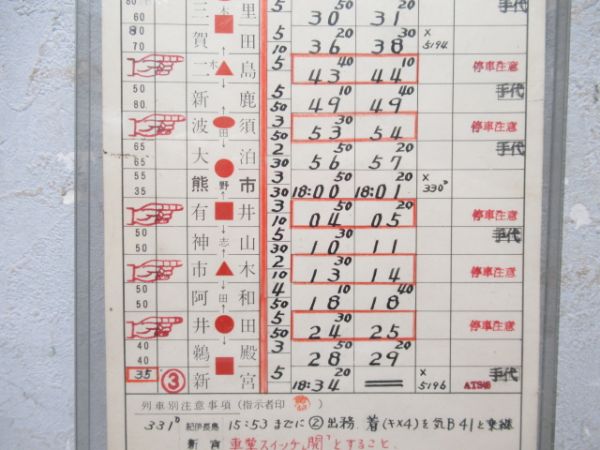 60 三 里 5 50 20 手代
30 31
80 賀 田 5 20 30 ×
70 10 36 38 5194
二 木 島 5 40 10 停車注意
10 43 44
50 新 鹿 5 10 40 手代
80 50 49 49
波 田 須 3 30 停車注意
50 53 54
65 大 泊 2 20 手代
65 30 56 57
55 熊 野 市 3 30 20 ×
35 30 18:00 18:01 330D
有 井 3 50 20 停車注意
10 04 05
50 神 志 山 5 手代
50 30 10 11
市 木 2 30 停車注意
10 13 14
50 阿 田 和 4 10 40
50 50 18 18
井 田 5 30 停車注意
50 24 25
40 鵜 殿 3 50 20
40 28 29
35 ③ 新 宮 5 18:34 × 5196 ATS 手代
列車別注意事項(指示者印 )
331D 紀伊長島 15:53までに②出務 着(キ×4)を気B41と乗継
新宮 車掌スイッチ「閉」とすること。